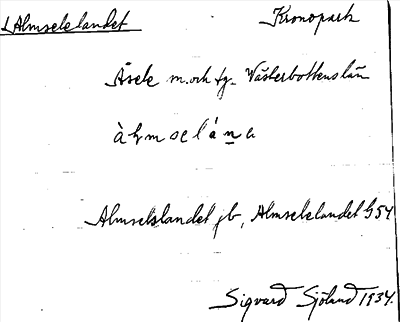 Almselelandet Kronopark
Åsele m. och fg. Västerbottens län
Almselslandet jb, Almselelandet G54
Sigvard Sjöland 1934.